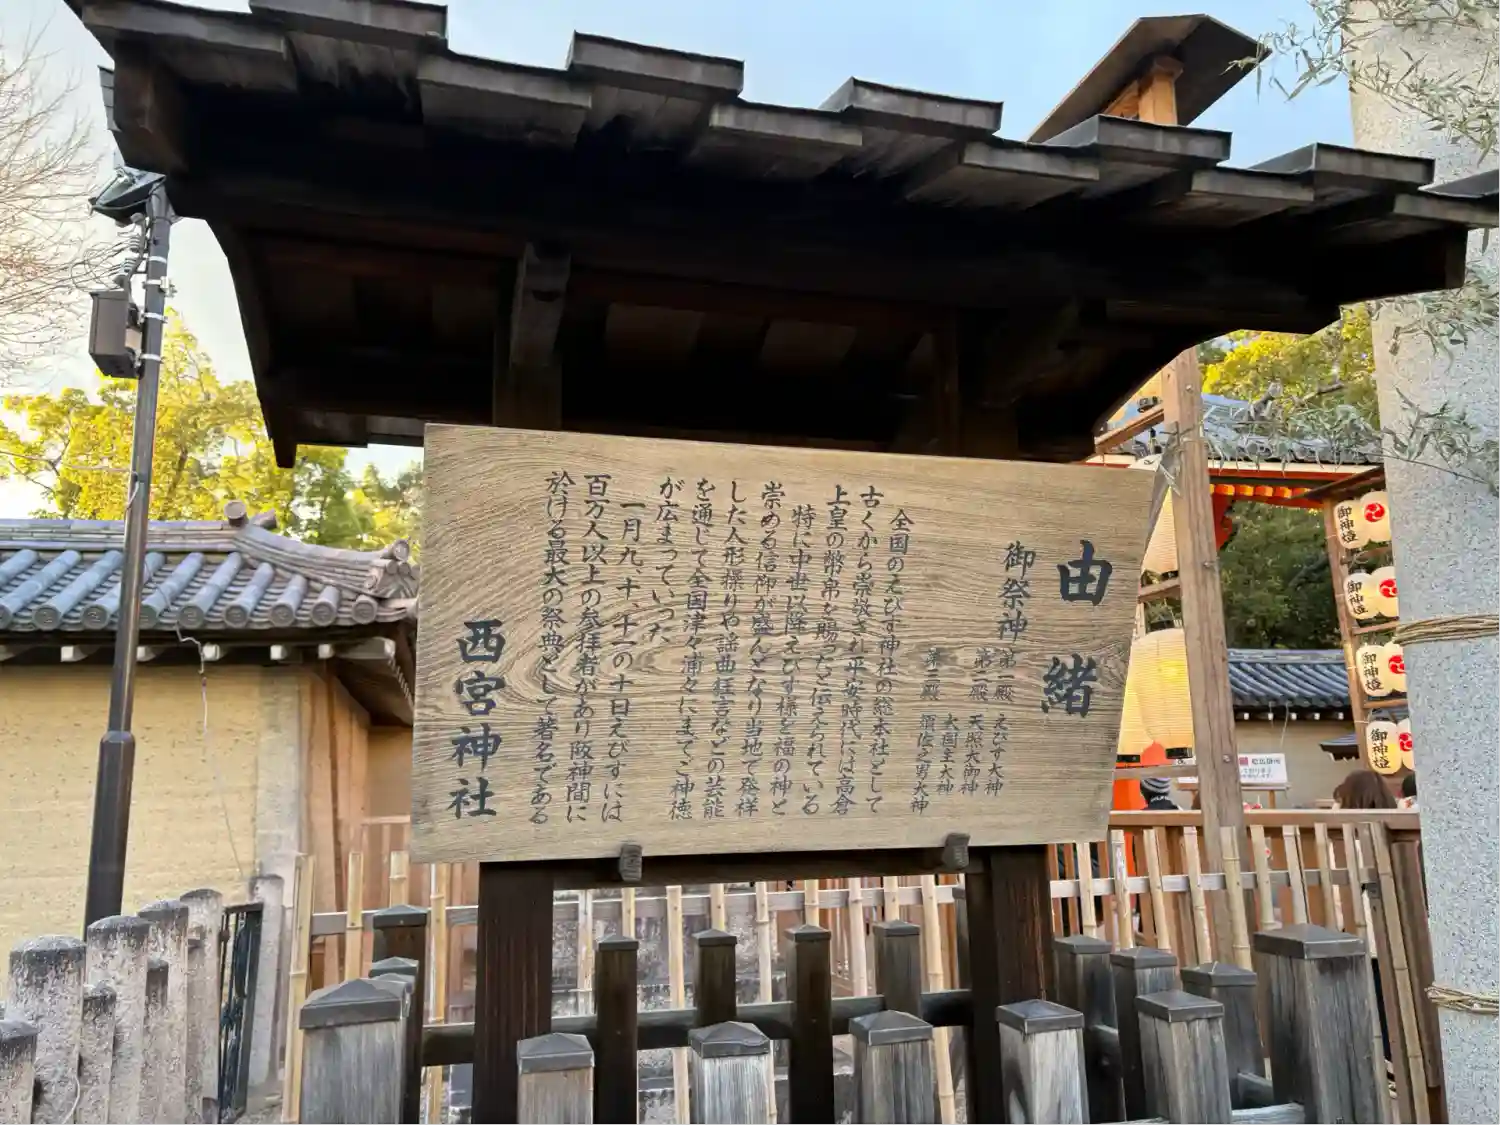 由緒
御祭神
第一殿 えびす大神
第二殿 天照大御神
大国主大神
第三殿 須佐之男大神
全国のえびす神社の総本社として
古くから崇敬され平安時代には高倉
上皇の幣帛を賜ったと伝えられている
特に中世以降えびす様を福の神と
崇める信仰が盛んとなり当地で発祥
した人形操りや謡曲狂言などの芸能
を通じて全国津々浦々にまでご神徳
が広まっていった
一月九、十、十一の十日えびすには
百万人以上の参拝者があり阪神間に
於ける最大の祭典として著名である
西宮神社
御神燈
御神燈
御神燈
御神燈